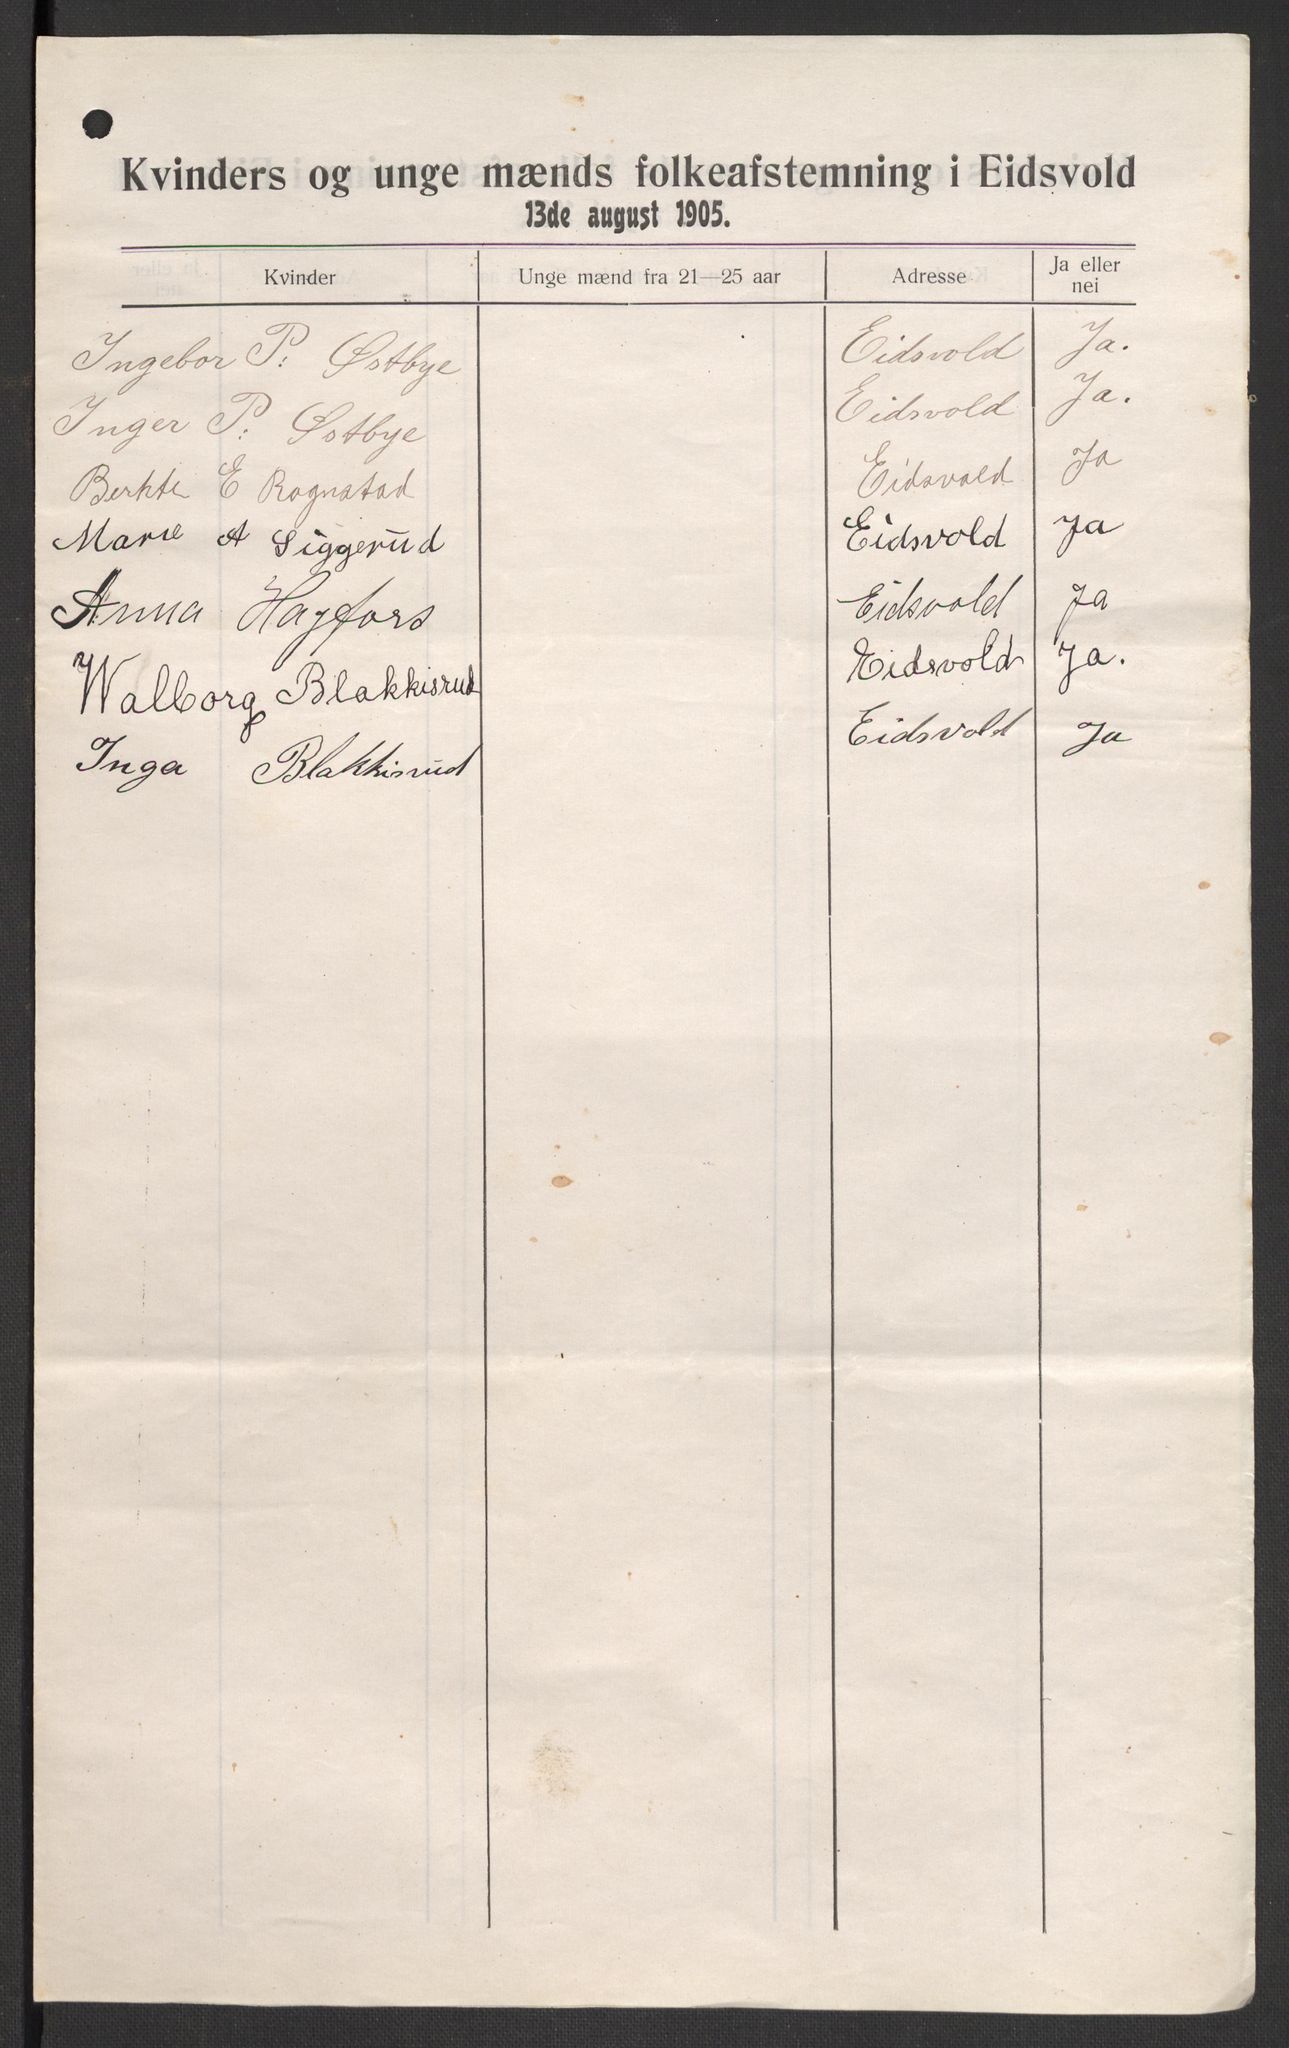 Kvinders og unge mænds folkeafstemning i Eidsvold
13de august 1905.
Kvinder Unge mænd fra 21—25 aar Adresse Ja eller nei
Ingebor P: Østbye Eidsvold Ja.
Inger P: Østbye Eidsvold Ja.
Berhte E Rognstad Eidsvold Ja
Marie A Siggerud Eidsvold Ja
Anna Hagfors Eidsvold Ja
Walborg Blakkisrud Eidsvold Ja.
Inga Blakkisrud Eidsvold Ja